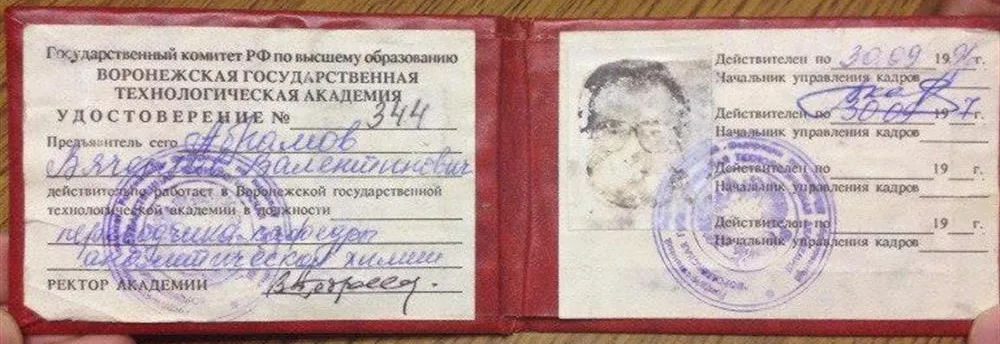 Государственный комитет РФ по высшему образованию
ВОРОНЕЖСКАЯ ГОСУДАРСТВЕННАЯ
ТЕХНОЛОГИЧЕСКАЯ АКАДЕМИЯ
УДОСТОВЕРЕНИЕ № 344
Предъявитель сего Абрамов
Вячеслав Валентинович
действительно работает в Воронежской государственной
технологической академии в должности
переводчика кафедры
аналитической химии
РЕКТОР АКАДЕМИИ
Действителен по 30.09 199 г.
Начальник управления кадров
Действителен по 30.09 1997 г.
Начальник управления кадров
Действителен по 19 г.
Начальник управления кадров
Действителен по 19 г.
Начальник управления кадров